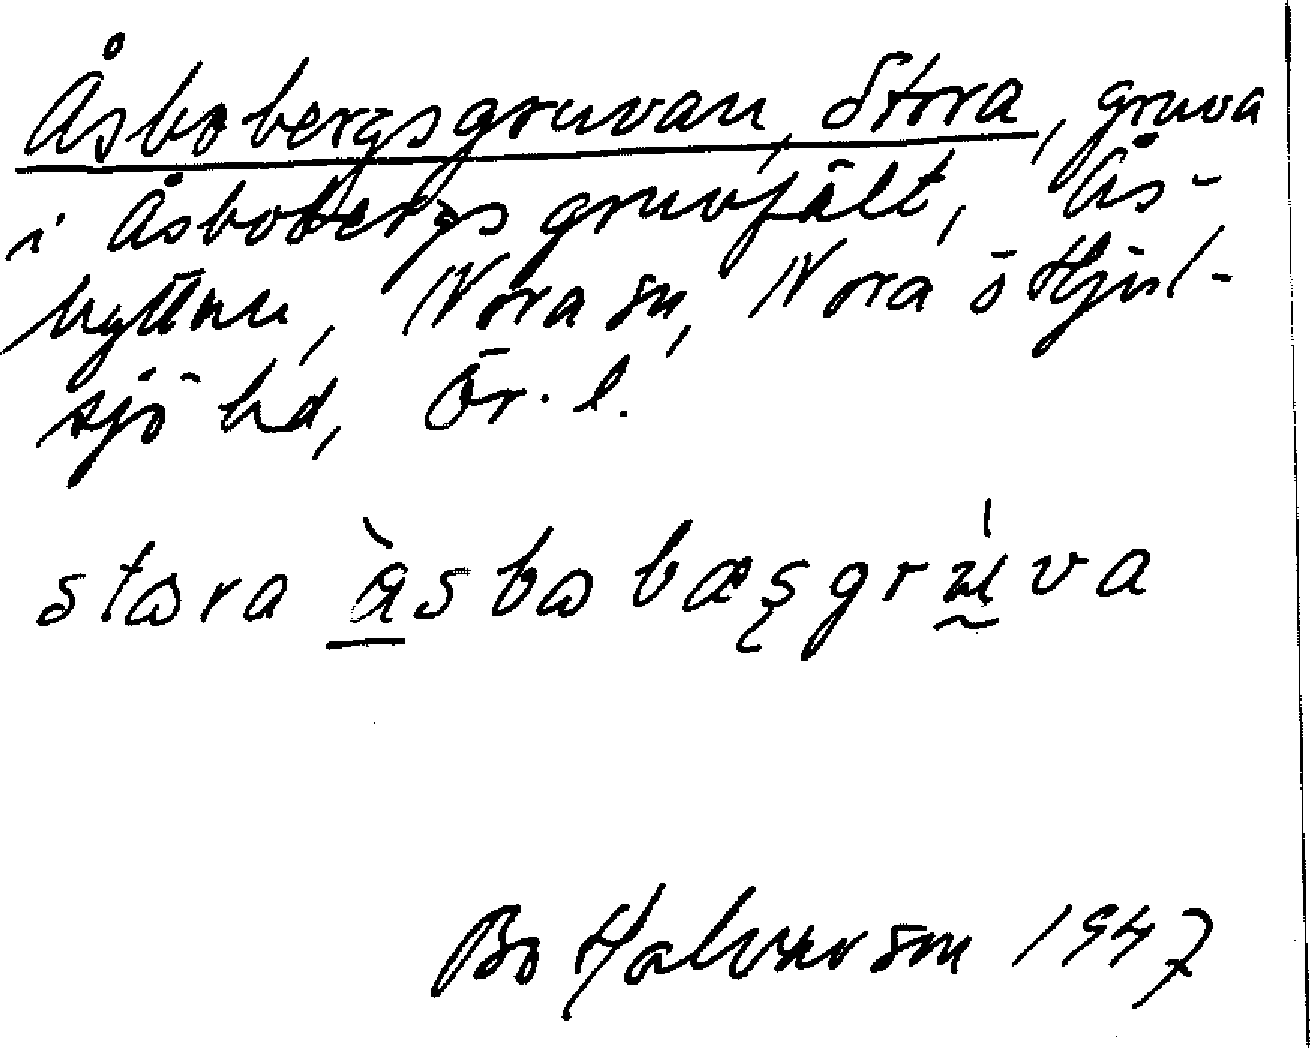 Åsbobergsgruvan, Stora, gruva
i Åsbobergs gruvfält, Ås-
hyttan, Nora sn, Nora o Hjul-
sjö hd, Ör. l.
stɷra å̀sbɷ bæʂgrʉ́va
Bo Halvarson 1947